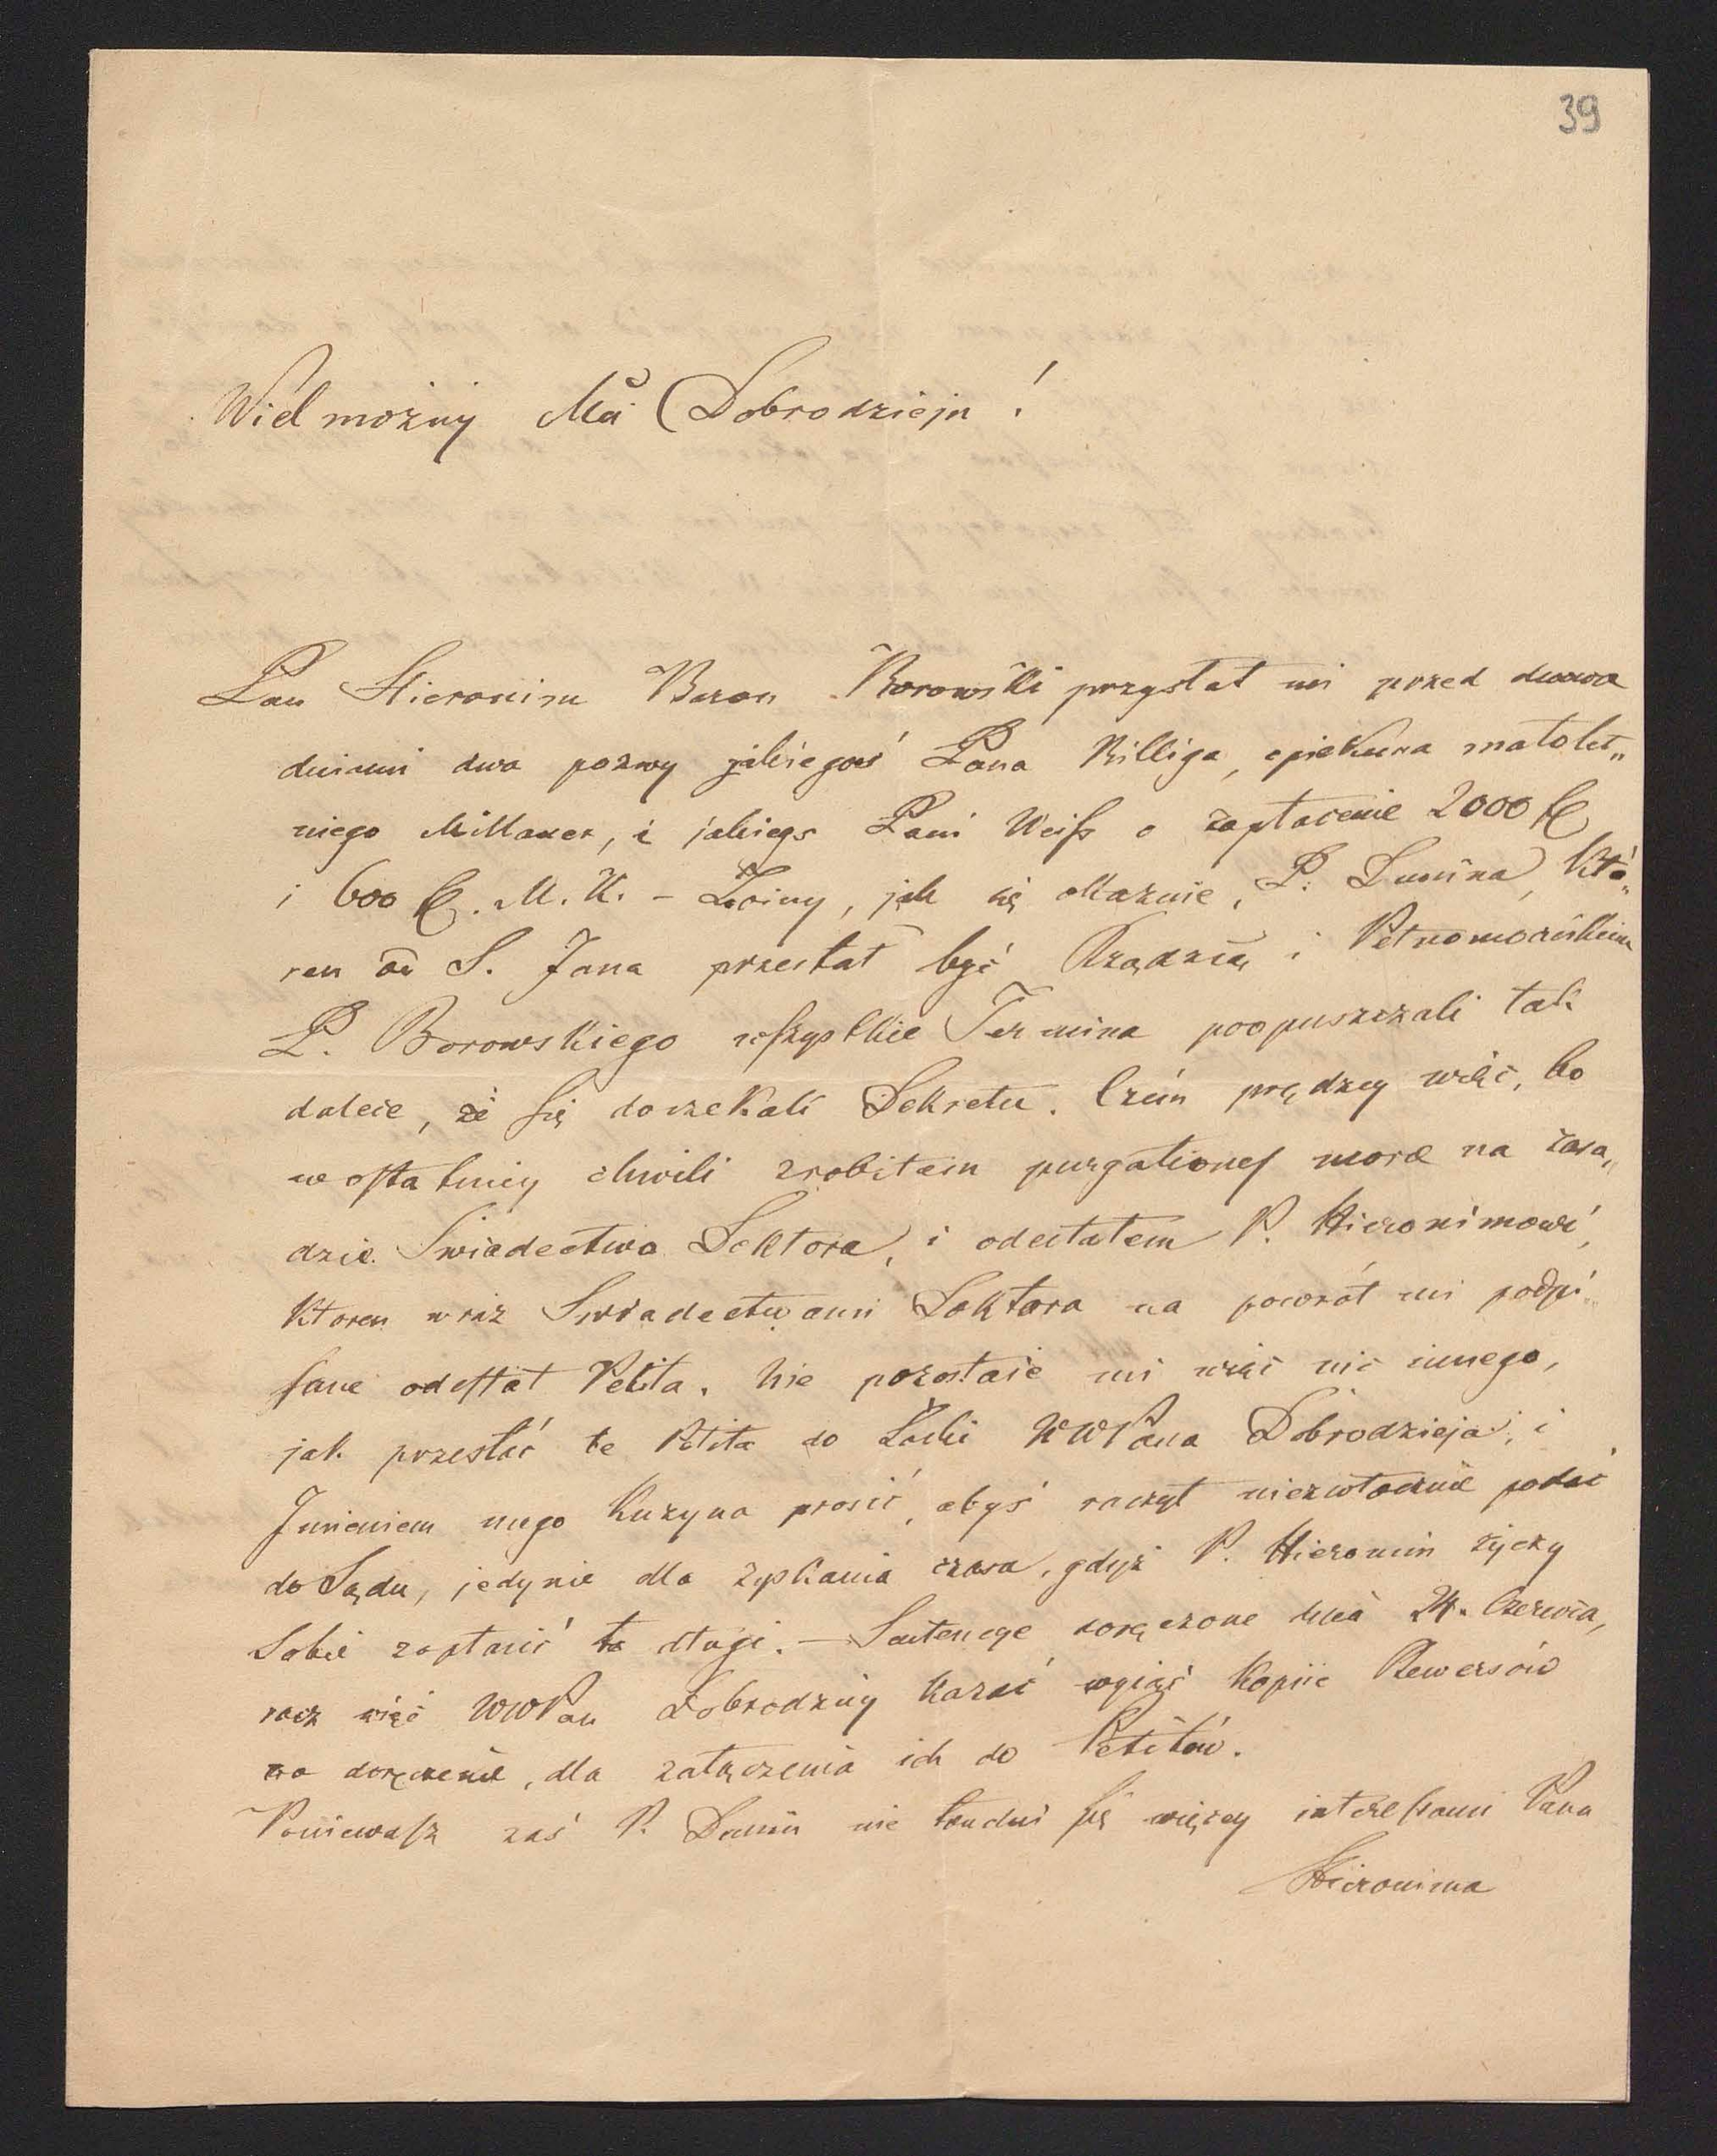 39
Wielmożny Mći Dobrodzieju!
Pan Hieronim Baron Borowski przysłał mi przed dwoma
dniami dwa pozwy jakiegoś Pana Killiga, opiekuna małolet„
niego Millauer, i jakiegs Pani Weiß o zapłacenie 2000 f
i 600 f. M.K. – Z winy, jak się okazuie, P. Dunina, któ„
ren od S. Jana przestał być Rządzcą i Pełnomocnikiem
P. Borowskiego wszystkie Termina poopuszczali tak
dalece, że się doczekali Dekretu. Czém prędzey więc, bo
w ostatniey chwili zrobiłem purgationes morae na zasa„
dzie Swiadectwa Doktora, i odesłałem P. Hieronimowi,
ktoren wraz Swiadectwami Doktora na powrót mi podpi„
sane odesłał Petita. Nie pozostaie mi więc nic innego,
jak przesłać te Petita do Łaski WWPana Dobrodzieja, i
Jmieniem mego Kuzyna prosić, abyś raczył niezwłocznie podać
do Sądu, jedynie dla zyskania czasu, gdyż P. Hieronim życzy
Sobie zapłacić te długi. — Sentencye doręczone dnia 24. Czerwca,
racz więc WWPan Dobrodziey kazać wyjąć kopiie Rewersów
na doręczenie, dla załączenia ich do Petitów.
Ponieważ zaś P. Dunin nie trudni się więcey interessami Pana
Hieronima